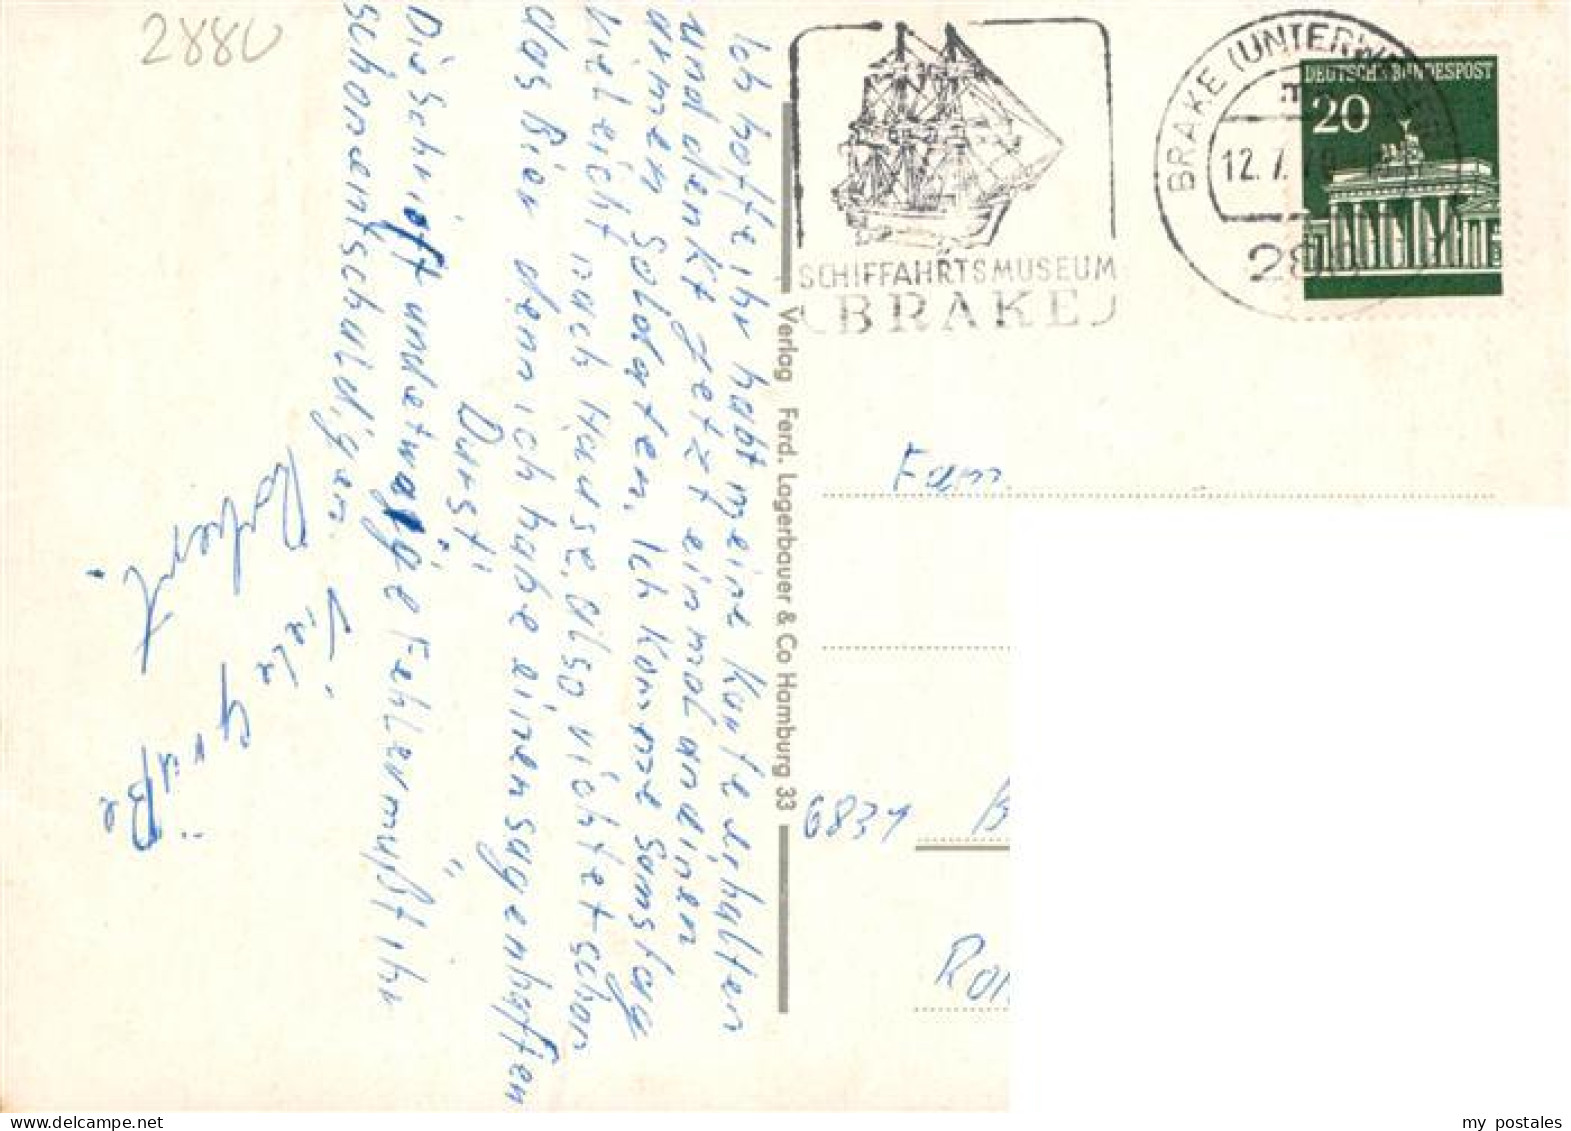 2880
Ich hoffe ihr habt meine Karte erhalten
und denkt jetzt einmal an einen
armen Soldaten. Ich komme Samstag
vieleicht nach Hause, also richtet schon
das Bier denn ich habe einen sagenhaften
Durst!
Die Schrift und etwaige Fehler müßt ihr
schon entschuldigen.
Viele Grüße
Robert
Verlag Ferd. Lagerbauer & Co Hamburg 33
SCHIFFAHRTSMUSEUM
BRAKE
BRAKE (UNTERWESER)
12.7.
DEUTSCHE BUNDESPOST
20
Fam.
6831
my_postales